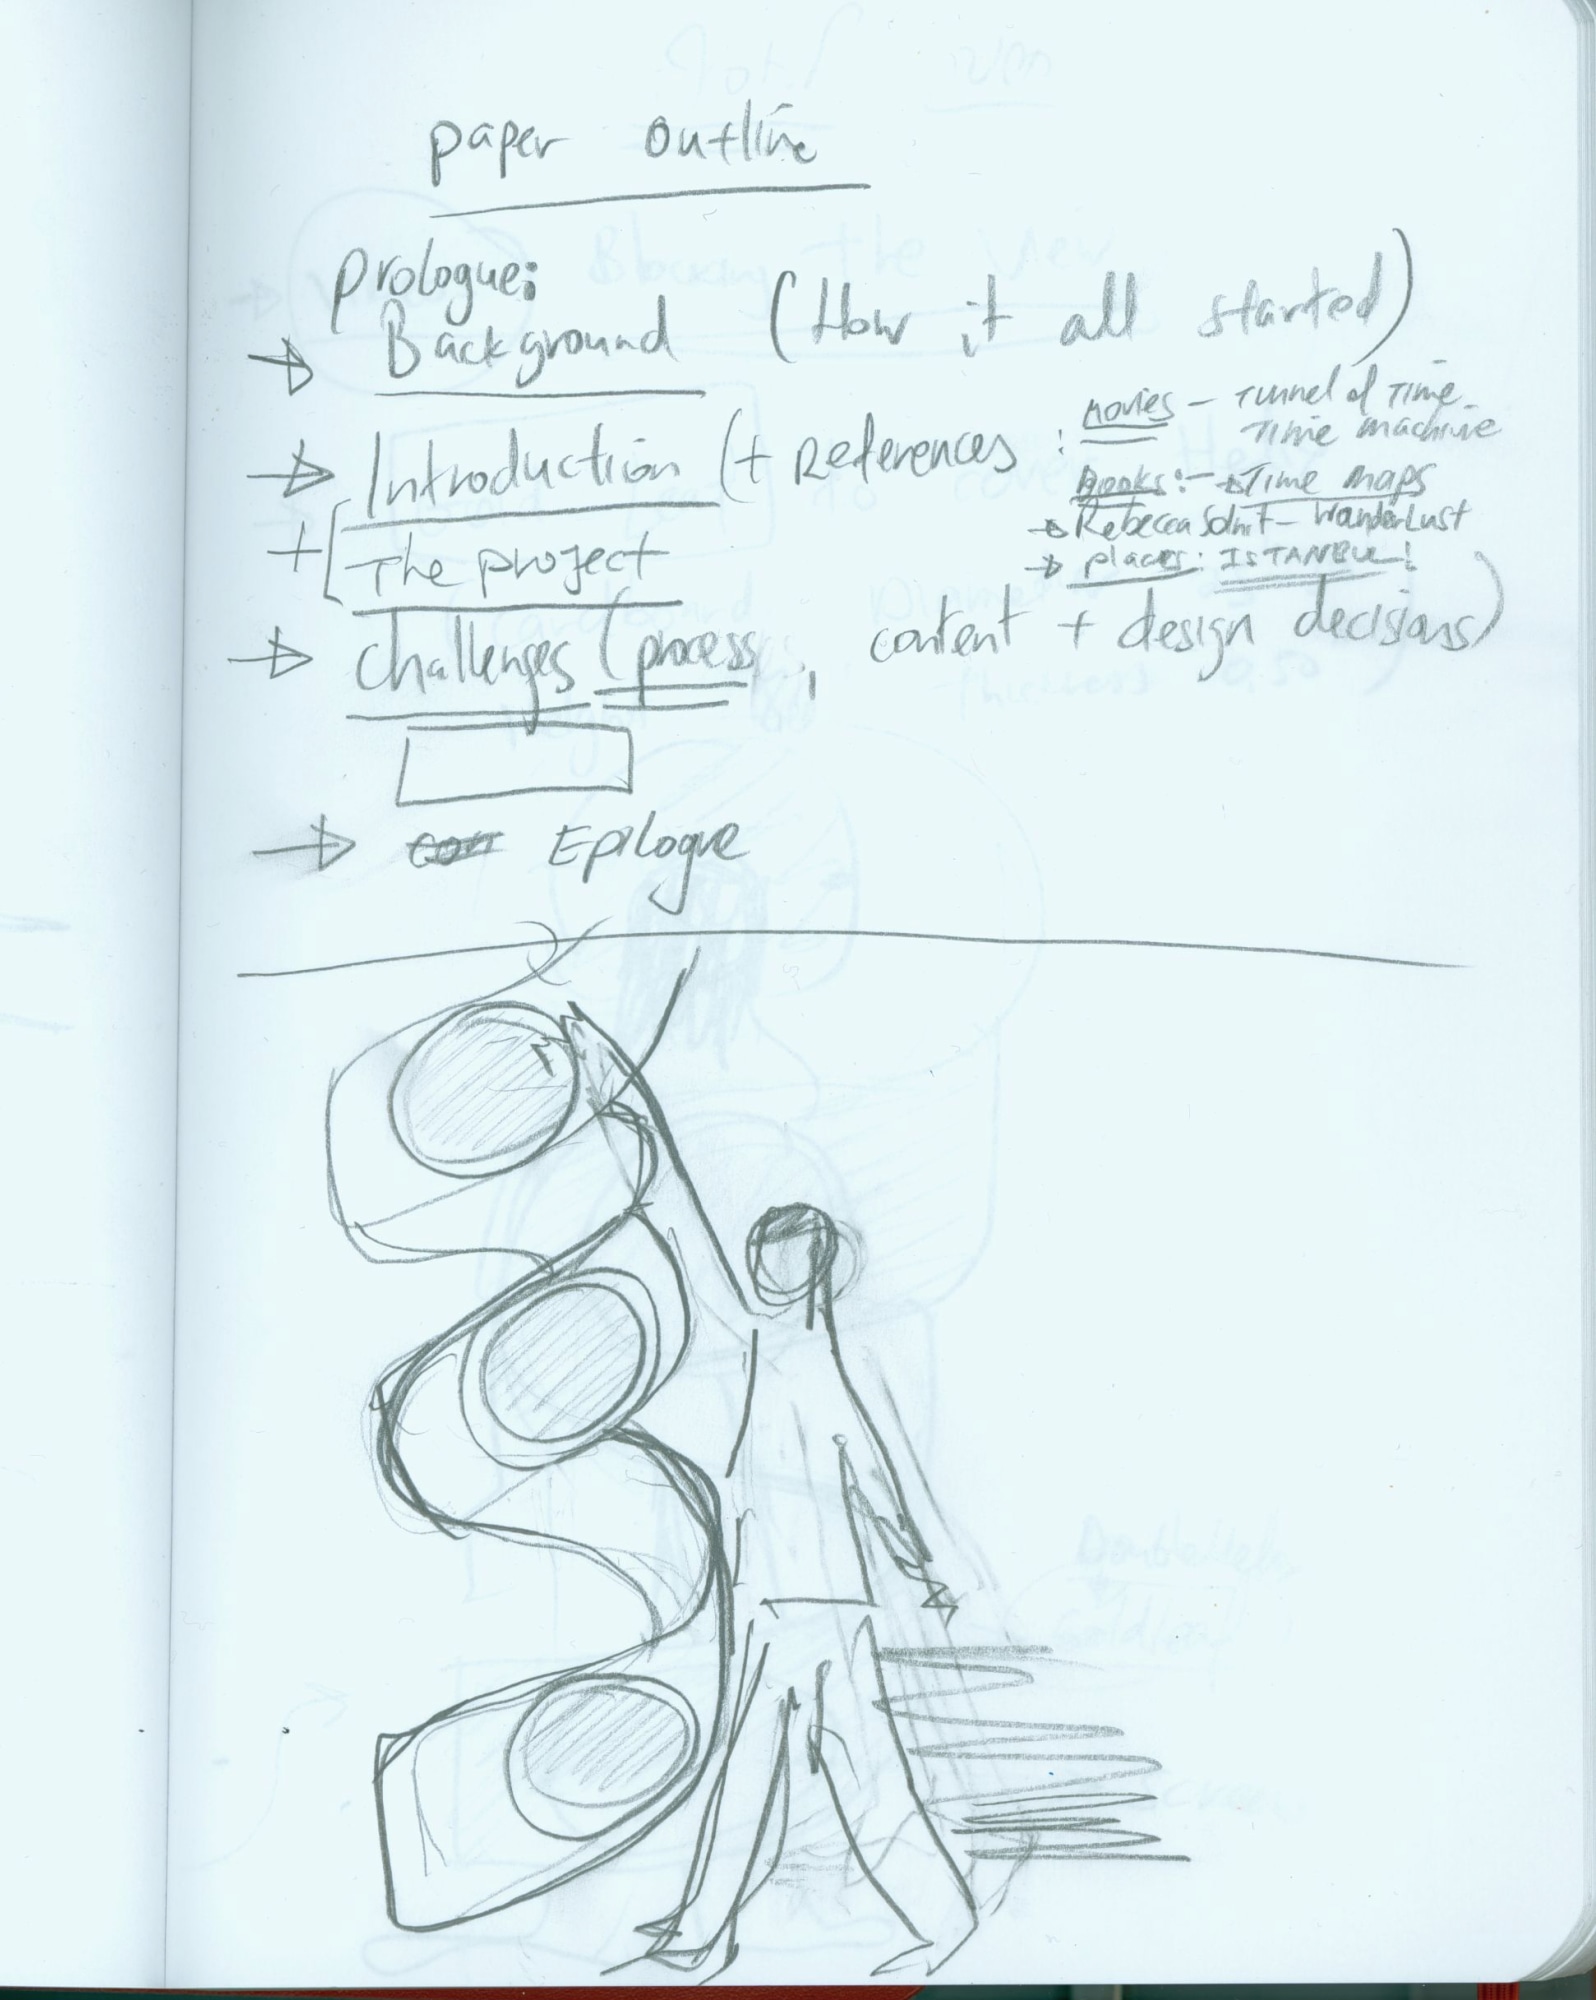 paper outline
prologue:
→ Background (How it all started)
→ Introduction (+ References :
movies - Tunnel of Time
Time machine
Books: - → Time maps
→ Rebecca Solnit - Wanderlust
→ places: ISTANBUL!
+ [The project
→ challenges (process, content + design decisions)
→ con Epilogue